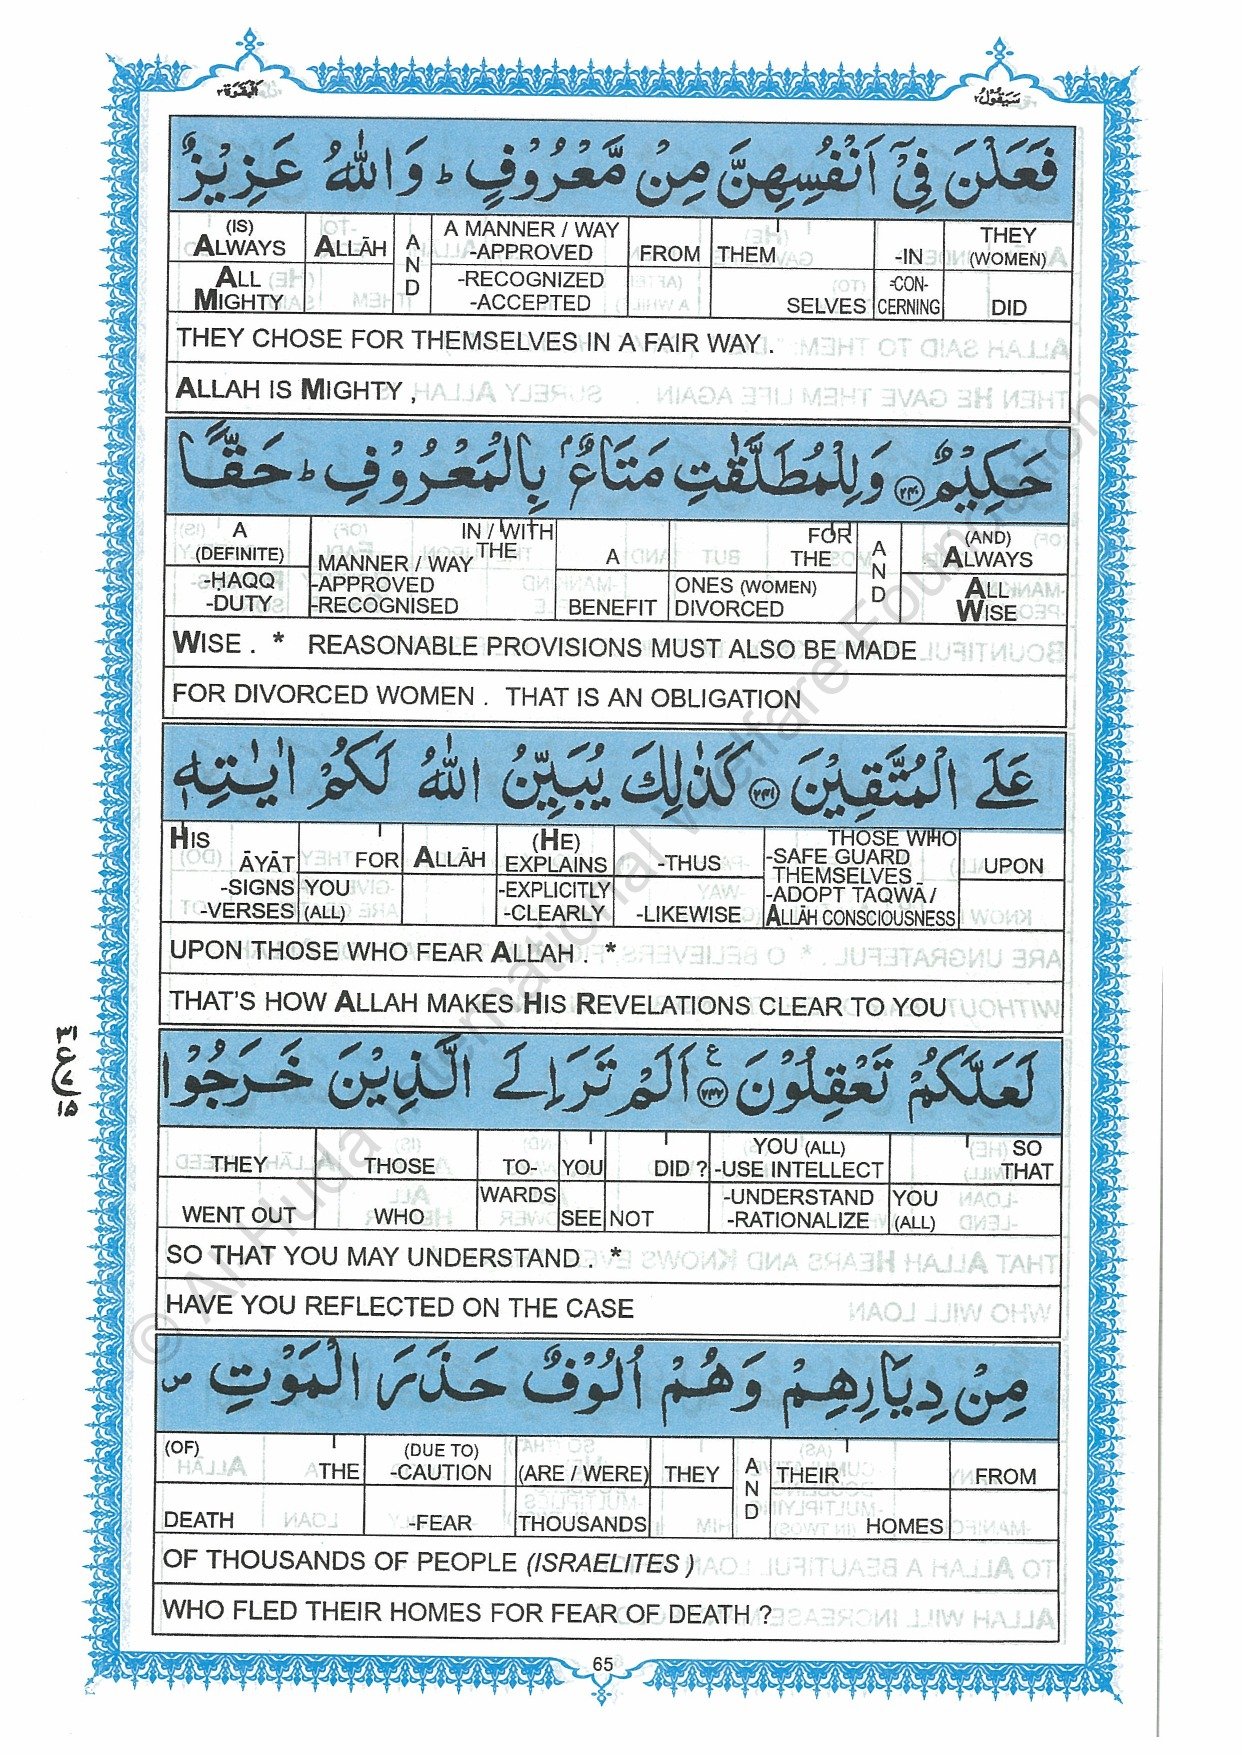 البقرة ٢
سيقول ٢
فَعَلْنَ فِيْۤ اَنْفُسِهِنَّ مِنْ مَّعْرُوْفٍ ؕ وَاللّٰهُ عَزِيْزٌ
(IS) ALWAYS ALL MIGHTY | ALLĀH | AND | A MANNER / WAY -APPROVED -RECOGNIZED -ACCEPTED | FROM | THEM SELVES | -IN -CON-CERNING | THEY (WOMEN) DID
THEY CHOSE FOR THEMSELVES IN A FAIR WAY .
ALLAH IS MIGHTY ,
حَكِيْمٌ ﴿۲۴۰﴾ وَلِلْمُطَلَّقٰتِ مَتَاعٌۢ بِالْمَعْرُوْفِ ؕ حَقًّا
A (DEFINITE) -HAQQ -DUTY | IN / WITH THE MANNER / WAY -APPROVED -RECOGNISED | A BENEFIT | FOR THE ONES (WOMEN) DIVORCED | AND | (AND) ALWAYS ALL WISE
WISE . * REASONABLE PROVISIONS MUST ALSO BE MADE
FOR DIVORCED WOMEN . THAT IS AN OBLIGATION
عَلَى الْمُتَّقِيْنَ ﴿۲۴۱﴾ كَذٰلِكَ يُبَيِّنُ اللّٰهُ لَكُمْ اٰيٰتِهٖ
HIS ĀYĀT -SIGNS -VERSES | FOR YOU (ALL) | ALLĀH | (HE) EXPLAINS -EXPLICITLY -CLEARLY | -THUS -LIKEWISE | THOSE WHO -SAFE GUARD THEMSELVES -ADOPT TAQWĀ / ALLĀH CONSCIOUSNESS | UPON
UPON THOSE WHO FEAR ALLAH . *
THAT'S HOW ALLAH MAKES HIS REVELATIONS CLEAR TO YOU
لَعَلَّكُمْ تَعْقِلُوْنَ ﴿۲۴۲﴾ ع اَلَمْ تَرَ اِلَى الَّذِيْنَ خَرَجُوْا
THEY WENT OUT | THOSE WHO | TO-WARDS | YOU SEE | DID ? NOT | YOU (ALL) -USE INTELLECT -UNDERSTAND -RATIONALIZE | SO THAT YOU (ALL)
SO THAT YOU MAY UNDERSTAND . *
HAVE YOU REFLECTED ON THE CASE
مِنْ دِيَارِهِمْ وَهُمْ اُلُوْفٌ حَذَرَ الْمَوْتِ ص
(OF) THE DEATH | (DUE TO) -CAUTION -FEAR | (ARE / WERE) THOUSANDS | THEY | AND | THEIR HOMES | FROM
OF THOUSANDS OF PEOPLE (ISRAELITES )
WHO FLED THEIR HOMES FOR FEAR OF DEATH ?
65
© Al Huda International Welfare Foundation